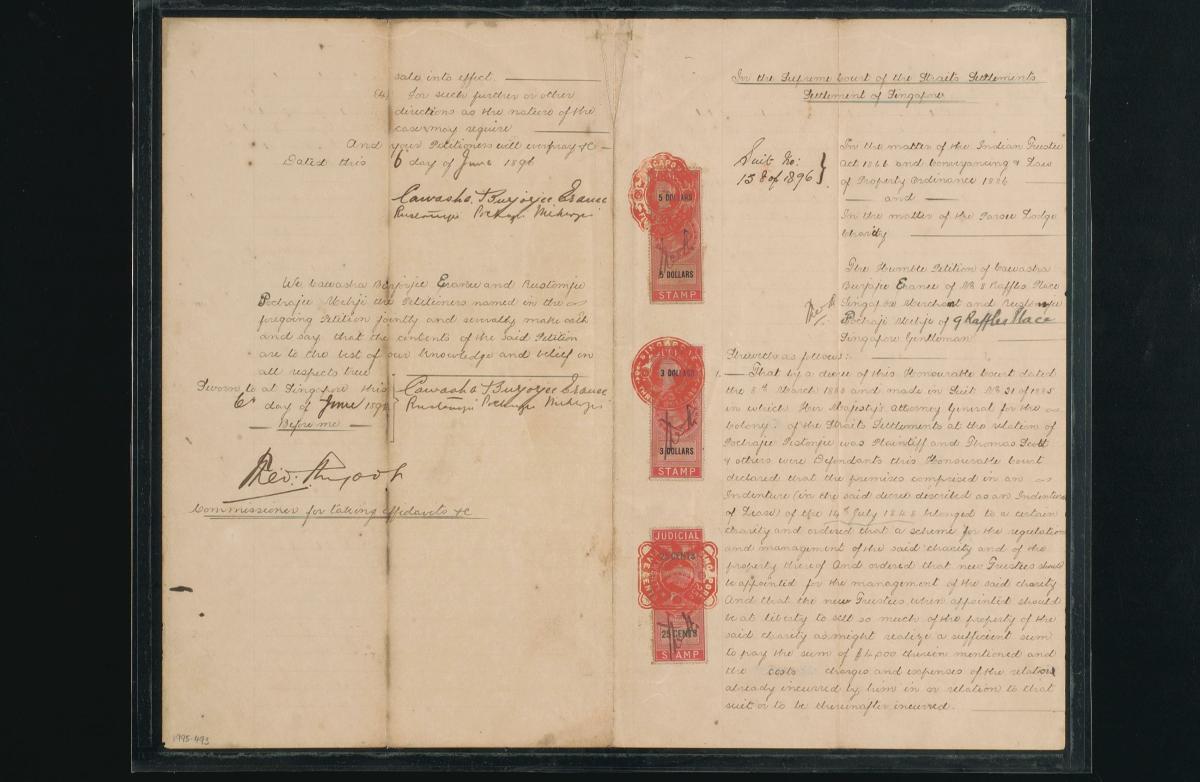 sale into effect.
(4) For such further or other
directions as the nature of the
case may require
And your Petitioners will ever pray &c
Dated this 6 day of June 1896
Cawasha Burjorjee Eranee
Rustomji Pochaji Mehirji
We Cawasha Burjorjee Eranee and Rustomjee
Pochajee Mehirji the Petitioners named in the
foregoing Petition jointly and severally make oath
and say that the contents of the said Petition
are to the best of our knowledge and belief in
all respects true
Sworn to at Singapore this
6th day of June 1896
Before me
Cawasha Burjorjee Eranee
Rustomji Pochaji Mehirji
Commissioner for taking affidavits &c
1995-493
5 DOLLARS
5 DOLLARS
STAMP
SINGAPORE
3 DOLLARS
3 DOLLARS
STAMP
JUDICIAL
SINGAPORE
25 CENTS
STAMP
In the Supreme Court of the Straits Settlements
Settlement of Singapore
Suit No:
138 of 1896
In the matter of the Indian Trustee
Act 1866 and Conveyancing & Law
of Property Ordinance 1886
and
In the matter of the Parsee Lodge
Charity
The Humble Petition of Cawasha
Burjorjie Eranee of No 8 Raffles Place
Singapore Merchant and Rustomjee
Pochaji Mehirji of 9 Raffles Place
Singapore Gentleman
Sheweth as follows:
1. That by a decree of this Honourable Court dated
the 8th March 1886 and made in Suit No 31 of 1885
in which Her Majesty's Attorney General for the
Colony of the Straits Settlements at the relation of
Pochajee Pestonjee was Plaintiff and Thomas Scott
& others were Defendants this Honourable Court
declared that the premises comprised in an
Indenture (in the said decree described as an Indenture
of Lease) of the 14th July 1848 belonged to a certain
charity and ordered that a scheme for the regulation
and management of the said charity and of the
property thereof And ordered that new Trustees should
be appointed for the management of the said charity
And that the new Trustees when appointed should
be at liberty to sell so much of the property of the
said charity as might realize a sufficient sum
to pay the sum of $4,000 therein mentioned and
the costs charges and expenses of the relator
already incurred by him in or relation to that
suit or to be thereinafter incurred.